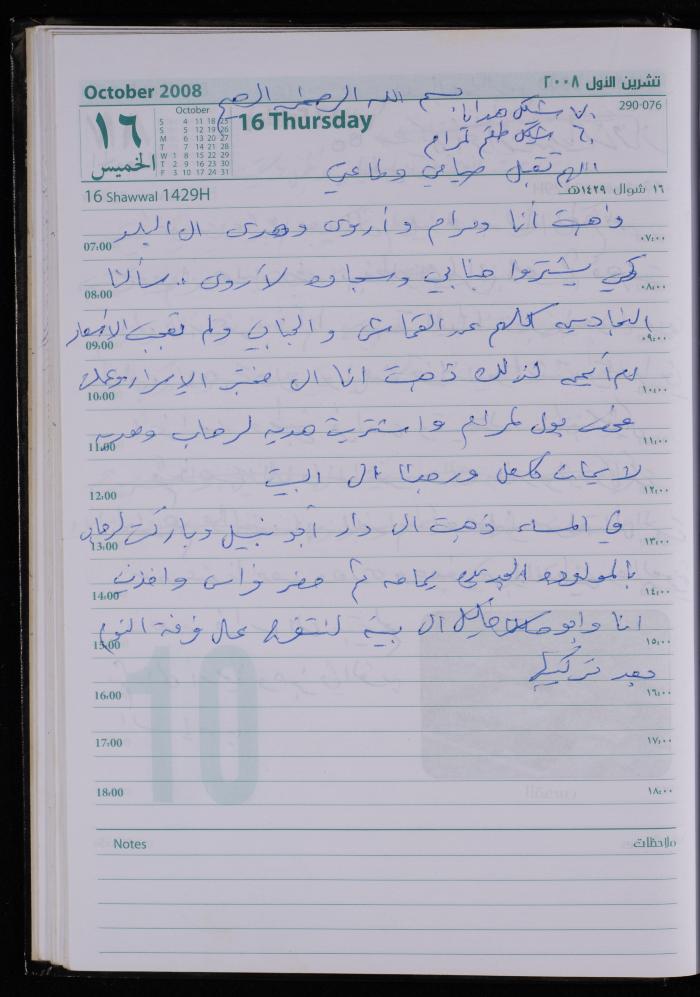 October 2008
تشرين الأول ٢٠٠٨
بسم الله الرحمن الرحيم
290-076
October
S 4 11 18 25
S 5 12 19 26
M 6 13 20 27
T 7 14 21 28
W 1 8 15 22 29
T 2 9 16 23 30
F 3 10 17 24 31
١٦
الخميس
16 Thursday
٧٠ شيكل هدايا
٦٠ شيكل طقم لمرام
اللهم تقبل صيامي وطاعتي
16 Shawwal 1429H
١٦ شوال ١٤٢٩هـ
ذهبت أنا ومرام وأروى وهدى الى البلد
07:00 ٠٧:٠٠
كي يشتروا جنابي وسجاده لأروى .. سألنا
08:00 ٠٨:٠٠
كلهم عن القماش والجنابي ولم تعجب الأسعار
09:00 ٠٩:٠٠
لذلك ذهبت انا الى مختبر الإسراء وعملت
10:00 ١٠:٠٠
فحص بول لمرام واشتريت هديه لرحاب وهديه
11:00 ١١:٠٠
لايمان كامل ورجعنا الى البيت
12:00 ١٢:٠٠
في المساء ذهبت الى دار أبو نبيل وباركت لرحاب
13:00 ١٣:٠٠
بالمولوده الجديده ثم حضر فراس واخذني
14:00 ١٤:٠٠
انا وابو خليل الى بيته لنتفرج على غرفة النوم
15:00 ١٥:٠٠
بعد تركيبها
16:00 ١٦:٠٠
17:00 ١٧:٠٠
18:00 ١٨:٠٠
10
Notes
ملاحظات